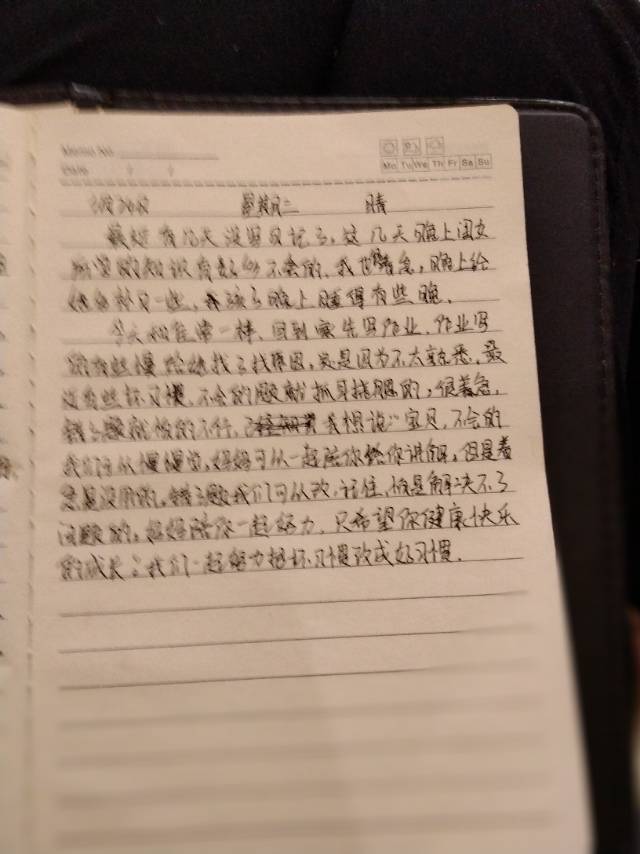 Memo No.
Date
Mo Tu We Th Fr Sa Su
星期二 晴
最近有几天没写日记了,这几天晚上闺女
所学的知识有好多不会的,我也着急,晚上给
她补习一些,孩子晚上睡得有些晚。
今天和往常一样,回到家先写作业,作业写
的有些慢给她找了找原因,究竟是因为不太熟悉,最
近有些坏习惯,不会的题就抓耳挠腮的,很着急,
错了题就怕的不行,我想说:宝贝,不会的
我们可以慢慢学,妈妈可以一起陪你给你讲解,但是着
急是没用的,错了题我们可以改,记住,怕是解决不了
问题的,妈妈陪你一起努力,只希望你健康快乐
的成长,我们一起努力把坏习惯改成好习惯.